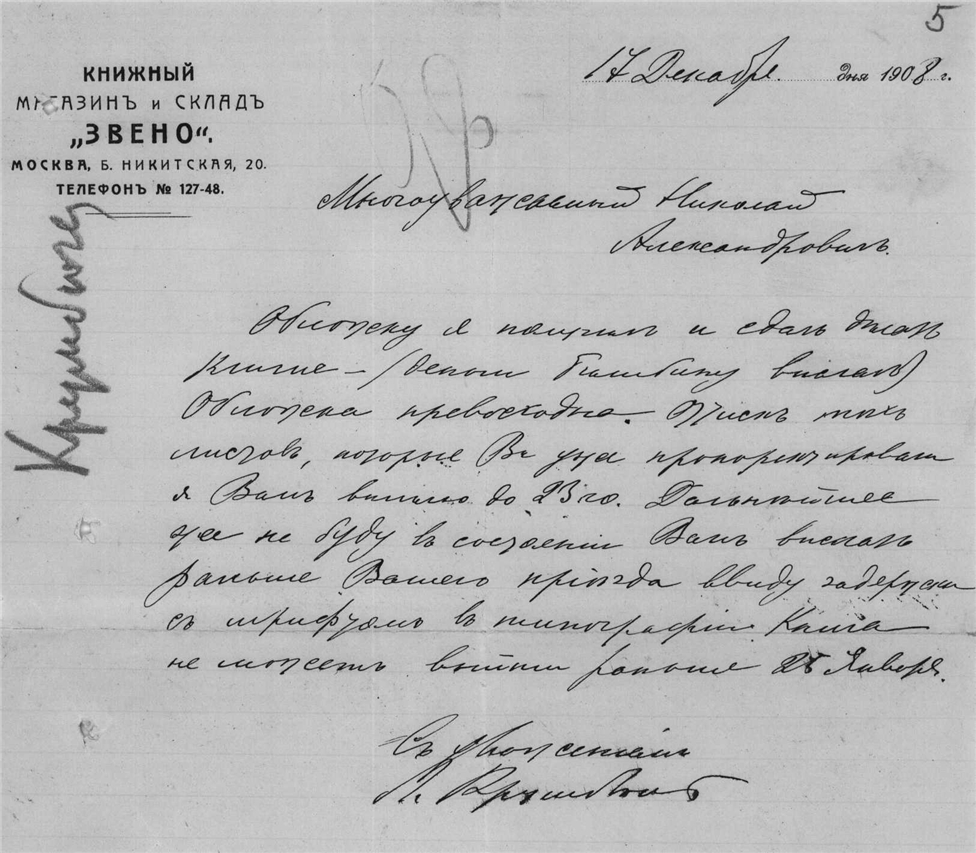 5
КНИЖНЫЙ
МАГАЗИНЪ и СКЛАДЪ
„ЗВЕНО“.
МОСКВА, Б. НИКИТСКАЯ, 20.
ТЕЛЕФОНЪ № 127-48.
17 Декабря. дня 1908 г.
Кр
Многоуважаемый Николай
Александровичъ.
Обложку я получилъ и сдалъ
клише – (деньги выслалъ)
Обложка превосходна. Оттискъ тѣхъ
листовъ, которые Вы уже прокорректировали
я Вамъ вышлю до 23го. Дальнѣйшее
уже не буду въ состояніи Вамъ выслать
раньше Вашего пріѣзда ввиду задержки
съ шрифтомъ въ типографіи. Книга
не можетъ выйти раньше 25 Января.
Съ уваженіемъ